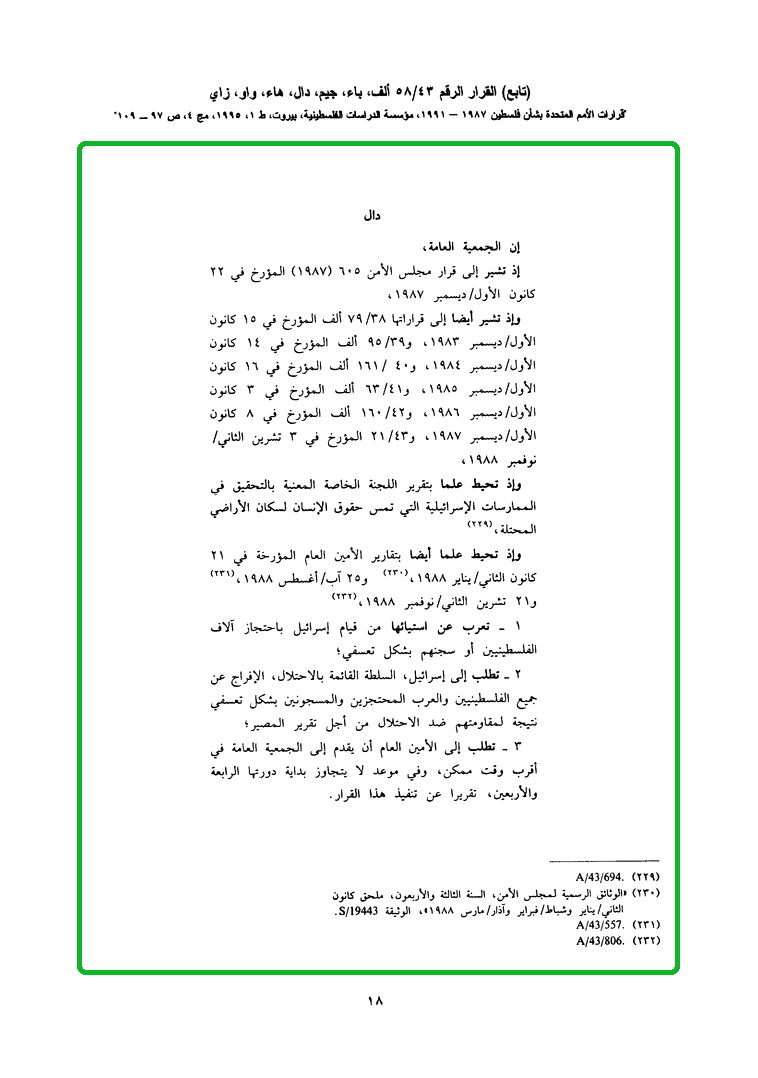 (تابع) القرار الرقم ٥٨/٤٣ ألف، باء، جيم، دال، هاء، واو، زاي
"قرارات الأمم المتحدة بشأن فلسطين ١٩٨٧ – ١٩٩١، مؤسسة الدراسات الفلسطينية، بيروت، ط ١، ١٩٩٥، مج ٤، ص ٩٧ – ١٠٩"
دال
إن الجمعية العامة،
إذ تشير إلى قرار مجلس الأمن ٦٠٥ (١٩٨٧) المؤرخ في ٢٢
كانون الأول/ديسمبر ١٩٨٧،
وإذ تشير أيضا إلى قراراتها ٧٩/٣٨ ألف المؤرخ في ١٥ كانون
الأول/ديسمبر ١٩٨٣، و٩٥/٣٩ ألف المؤرخ في ١٤ كانون
الأول/ديسمبر ١٩٨٤، و٤٠ /١٦١ ألف المؤرخ في ١٦ كانون
الأول/ديسمبر ١٩٨٥، و٦٣/٤١ ألف المؤرخ في ٣ كانون
الأول/ديسمبر ١٩٨٦، و١٦٠/٤٢ ألف المؤرخ في ٨ كانون
الأول/ديسمبر ١٩٨٧، و٢١/٤٣ المؤرخ في ٣ تشرين الثاني/
نوفمبر ١٩٨٨،
وإذ تحيط علما بتقرير اللجنة الخاصة المعنية بالتحقيق في
الممارسات الإسرائيلية التي تمس حقوق الإنسان لسكان الأراضي
المحتلة،(٢٢٩)
وإذ تحيط علما أيضا بتقارير الأمين العام المؤرخة في ٢١
كانون الثاني/يناير ١٩٨٨،(٢٣٠) و٢٥ آب/أغسطس ١٩٨٨،(٢٣١)
و٢١ تشرين الثاني/نوفمبر ١٩٨٨،(٢٣٢)
١ ـ تعرب عن استيائها من قيام إسرائيل باحتجاز آلاف
الفلسطينيين أو سجنهم بشكل تعسفي؛
٢ ـ تطلب إلى إسرائيل، السلطة القائمة بالاحتلال، الإفراج عن
جميع الفلسطينيين والعرب المحتجزين والمسجونين بشكل تعسفي
نتيجة لمقاومتهم ضد الاحتلال من أجل تقرير المصير؛
٣ ـ تطلب إلى الأمين العام أن يقدم إلى الجمعية العامة في
أقرب وقت ممكن، وفي موعد لا يتجاوز بداية دورتها الرابعة
والأربعين، تقريرا عن تنفيذ هذا القرار.
(٢٢٩) A/43/694.
(٢٣٠) «الوثائق الرسمية لمجلس الأمن، السنة الثالثة والأربعون، ملحق كانون
الثاني/يناير وشباط/فبراير وآذار/مارس ١٩٨٨»، الوثيقة S/19443.
(٢٣١) A/43/557.
(٢٣٢) A/43/806.
١٨